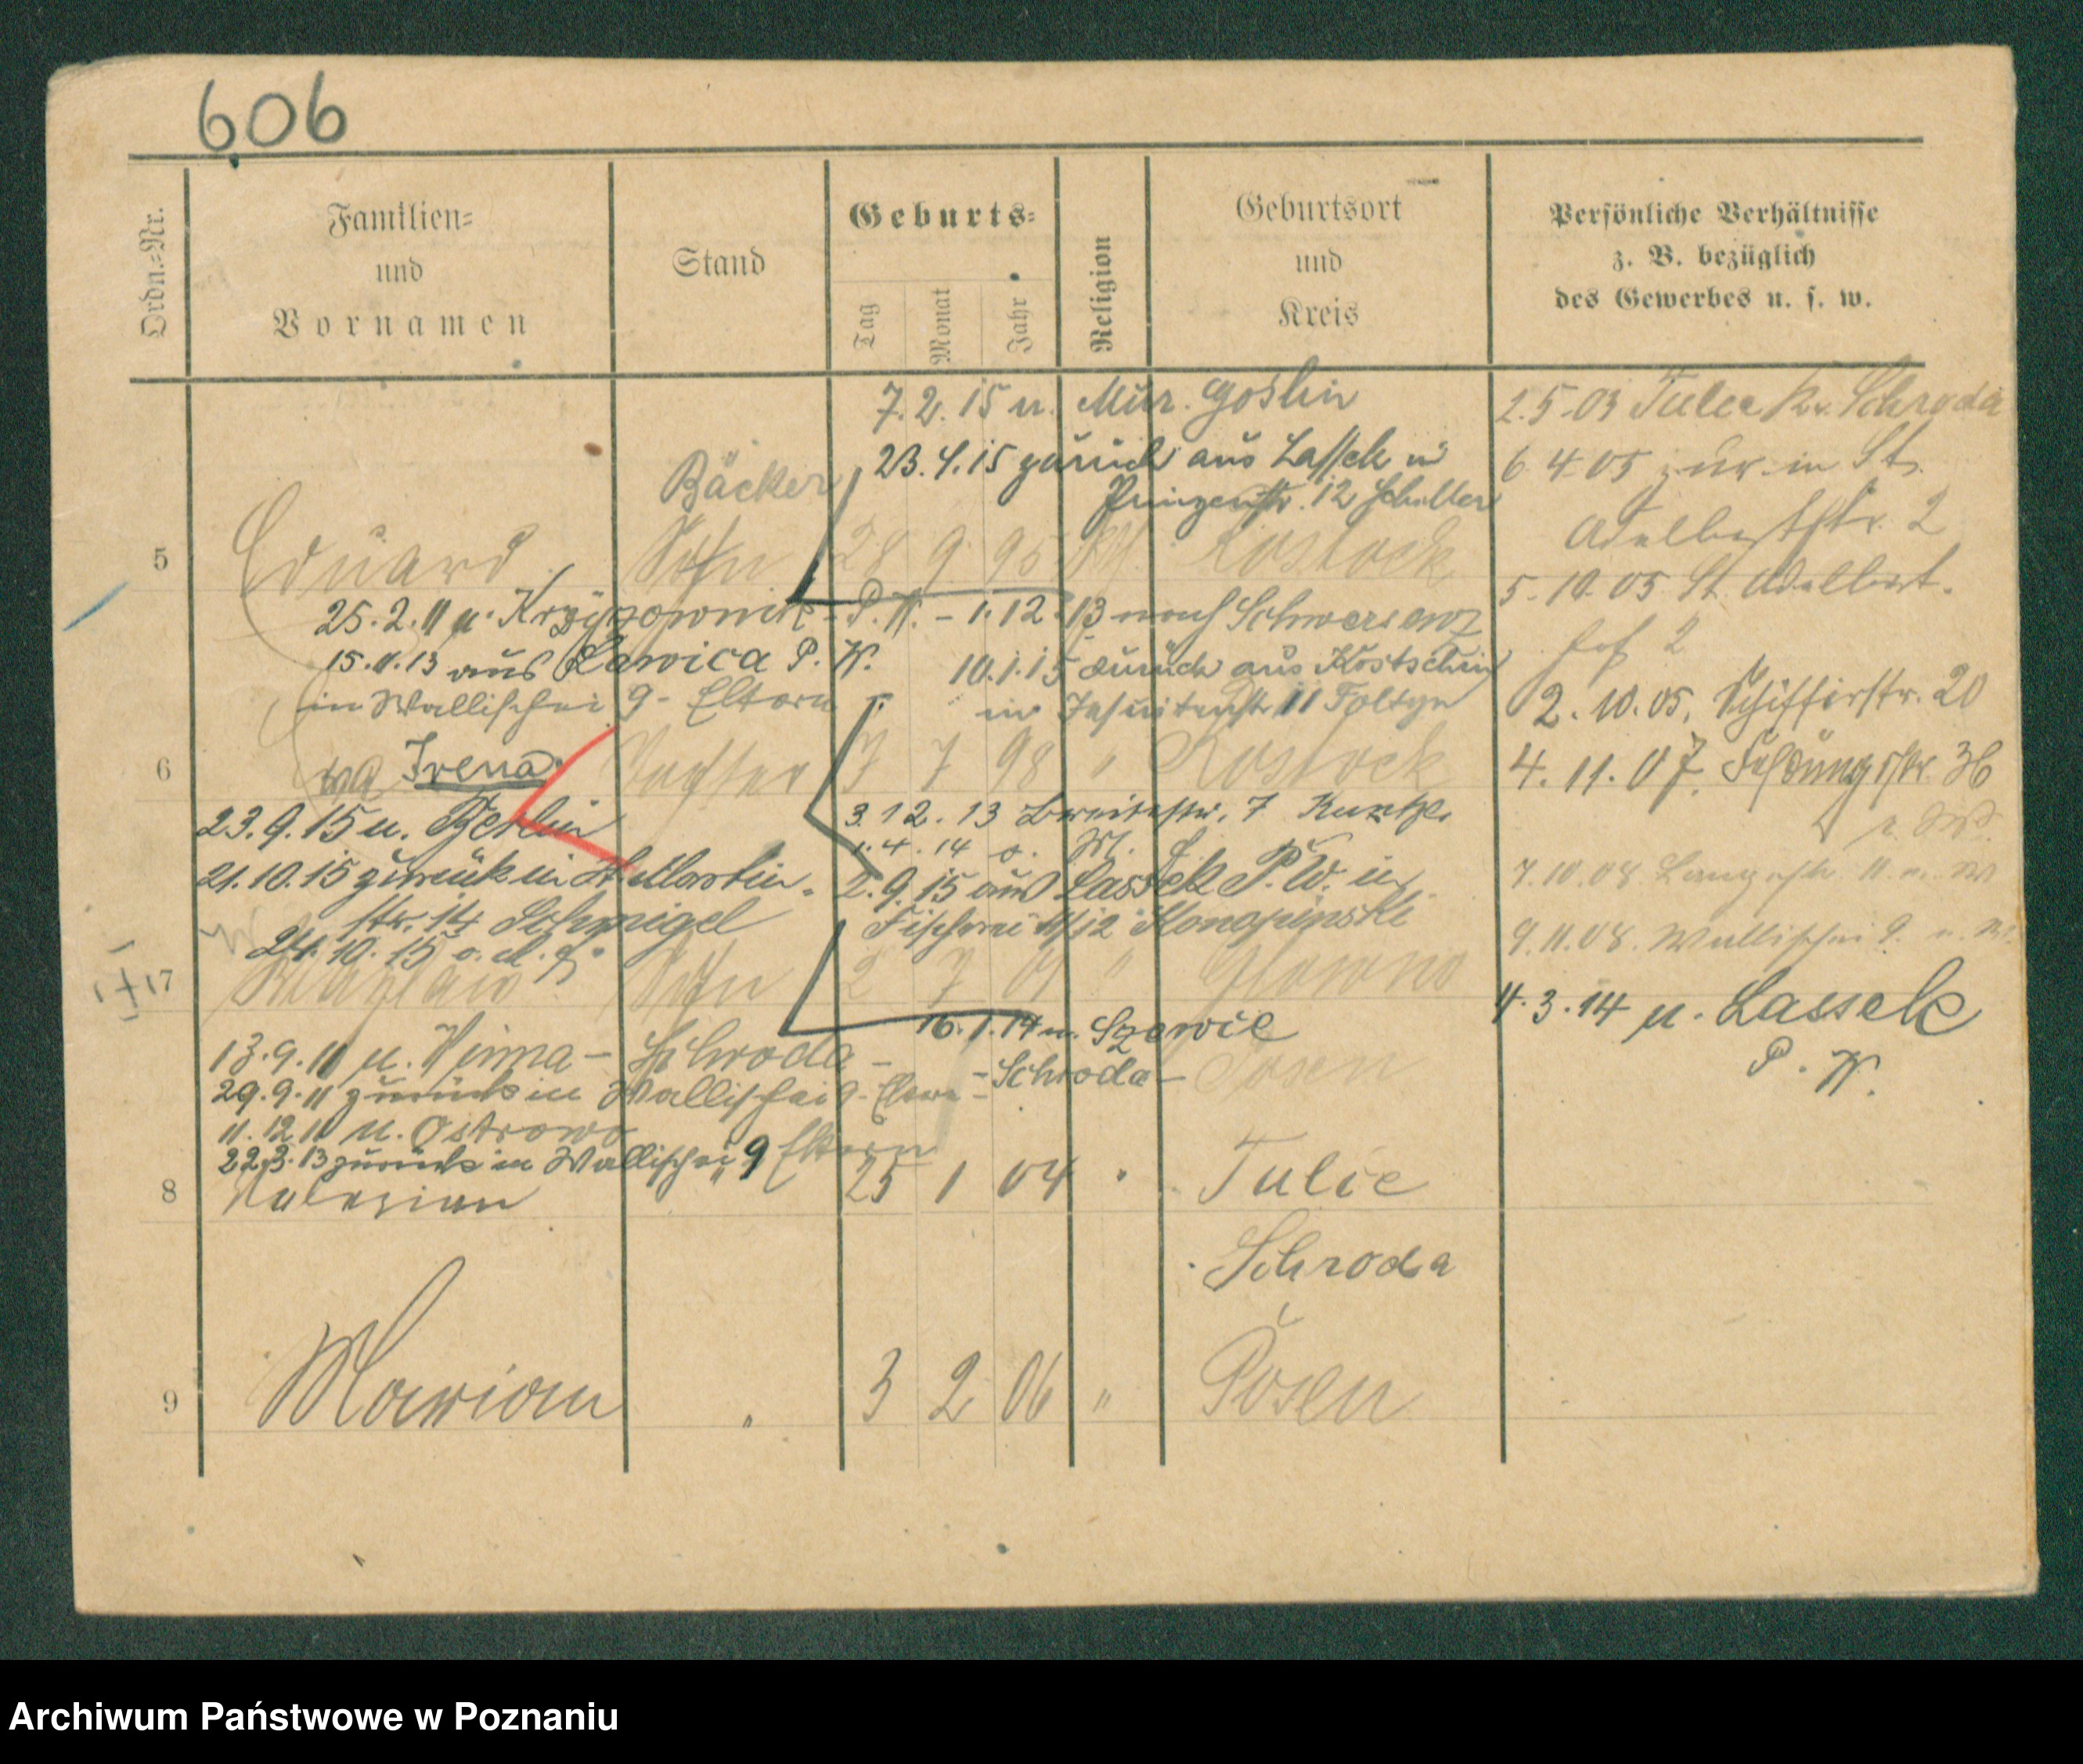 606
Ordn.=Nr.
Familien=
und
Vornamen
Stand
Geburts=
Tag
Monat
Jahr
Religion
Geburtsort
und
Kreis
Persönliche Verhältnisse
z. B. bezüglich
des Gewerbes u. s. w.
7. 2. 15 n. Mur. Goslin
23. 4. 15 zurück aus Lassek in
Prinzenstr. 12 Schuller
Bäcker
5 Eduard Sohn 28 9 95 Kostock
25. 2. 11 n. Krzyzownik - P. W. - 1. 12. 13 nach Schwersenz
15. 11. 13 aus Lawica P. W.
10. 1. 15 zurück aus Kostschin
in Wallischei 9 - Eltern
in Jesuitenstr. 11 Foltyn
6 Irena Tochter 7 7 98 " Kostock
3. 12. 13 Breitestr. 7
1. 4. 14
23. 9. 15 n. Berlin
21. 10. 15 zurück in St. Martin-
str. 14 Schmigel
24. 10. 15
2. 9. 15 aus Lassek P. W. in
Fischerei 11/12 Konopinski
7 Sohn 2 7 01 " Glowno
16. 1. 14 n. Szewce
- Schroda -
13. 9. 11 n. Winna - Schroda -
29. 9. 11 zurück in Wallischei 9 -
11. 12. 11 n. Ostrowo
22. 3. 13 zurück in Wallischei 9 Eltern
Posen
8 Valerian " 25 1 04 " Tulce
Schroda
9 Marian " 3 2 06 " Posen
2. 5. 03 Tulce Kr. Schroda
6 4 05 zur. in St.
Adalbertstr. 2
5. 10. 05 St. Adalbert-
hof 2
12. 10. 05. Schifferstr. 20
4. 11. 07.
7. 10. 08. 11.
9. 11. 08. Wallischei 9.
4. 3. 14 n. Lassek
P. W.
Archiwum Państwowe w Poznaniu